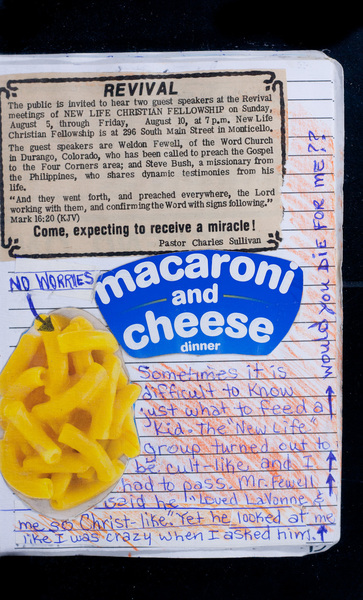 REVIVAL
The public is invited to hear two guest speakers at the Revival
meetings of NEW LIFE CHRISTIAN FELLOWSHIP on Sunday,
August 5, through Friday, August 10, at 7 p.m. New Life
Christian Fellowship is at 296 South Main Street in Monticello.
The guest speakers are Weldon Fewell, of the Word Church
in Durango, Colorado, who has been called to preach the Gospel
to the Four Corners area; and Steve Bush, a missionary from
the Philippines, who shares dynamic testimonies from his
life.
"And they went forth, and preached everywhere, the Lord
working with them, and confirming the Word with signs following."
Mark 16:20 (KJV)
Come, expecting to receive a miracle!
Pastor Charles Sullivan
NO WORRIES
macaroni
and
cheese
dinner
Sometimes it is
difficult to know
just what to feed a
kid. The "New Life"
group turned out to
be cult-like and I
had to pass. Mr. Fewell
said he "loved LaVonne &
me so Christ-like." Yet he looked at me
like I was crazy when I asked him.
WOULD YOU DIE FOR ME??